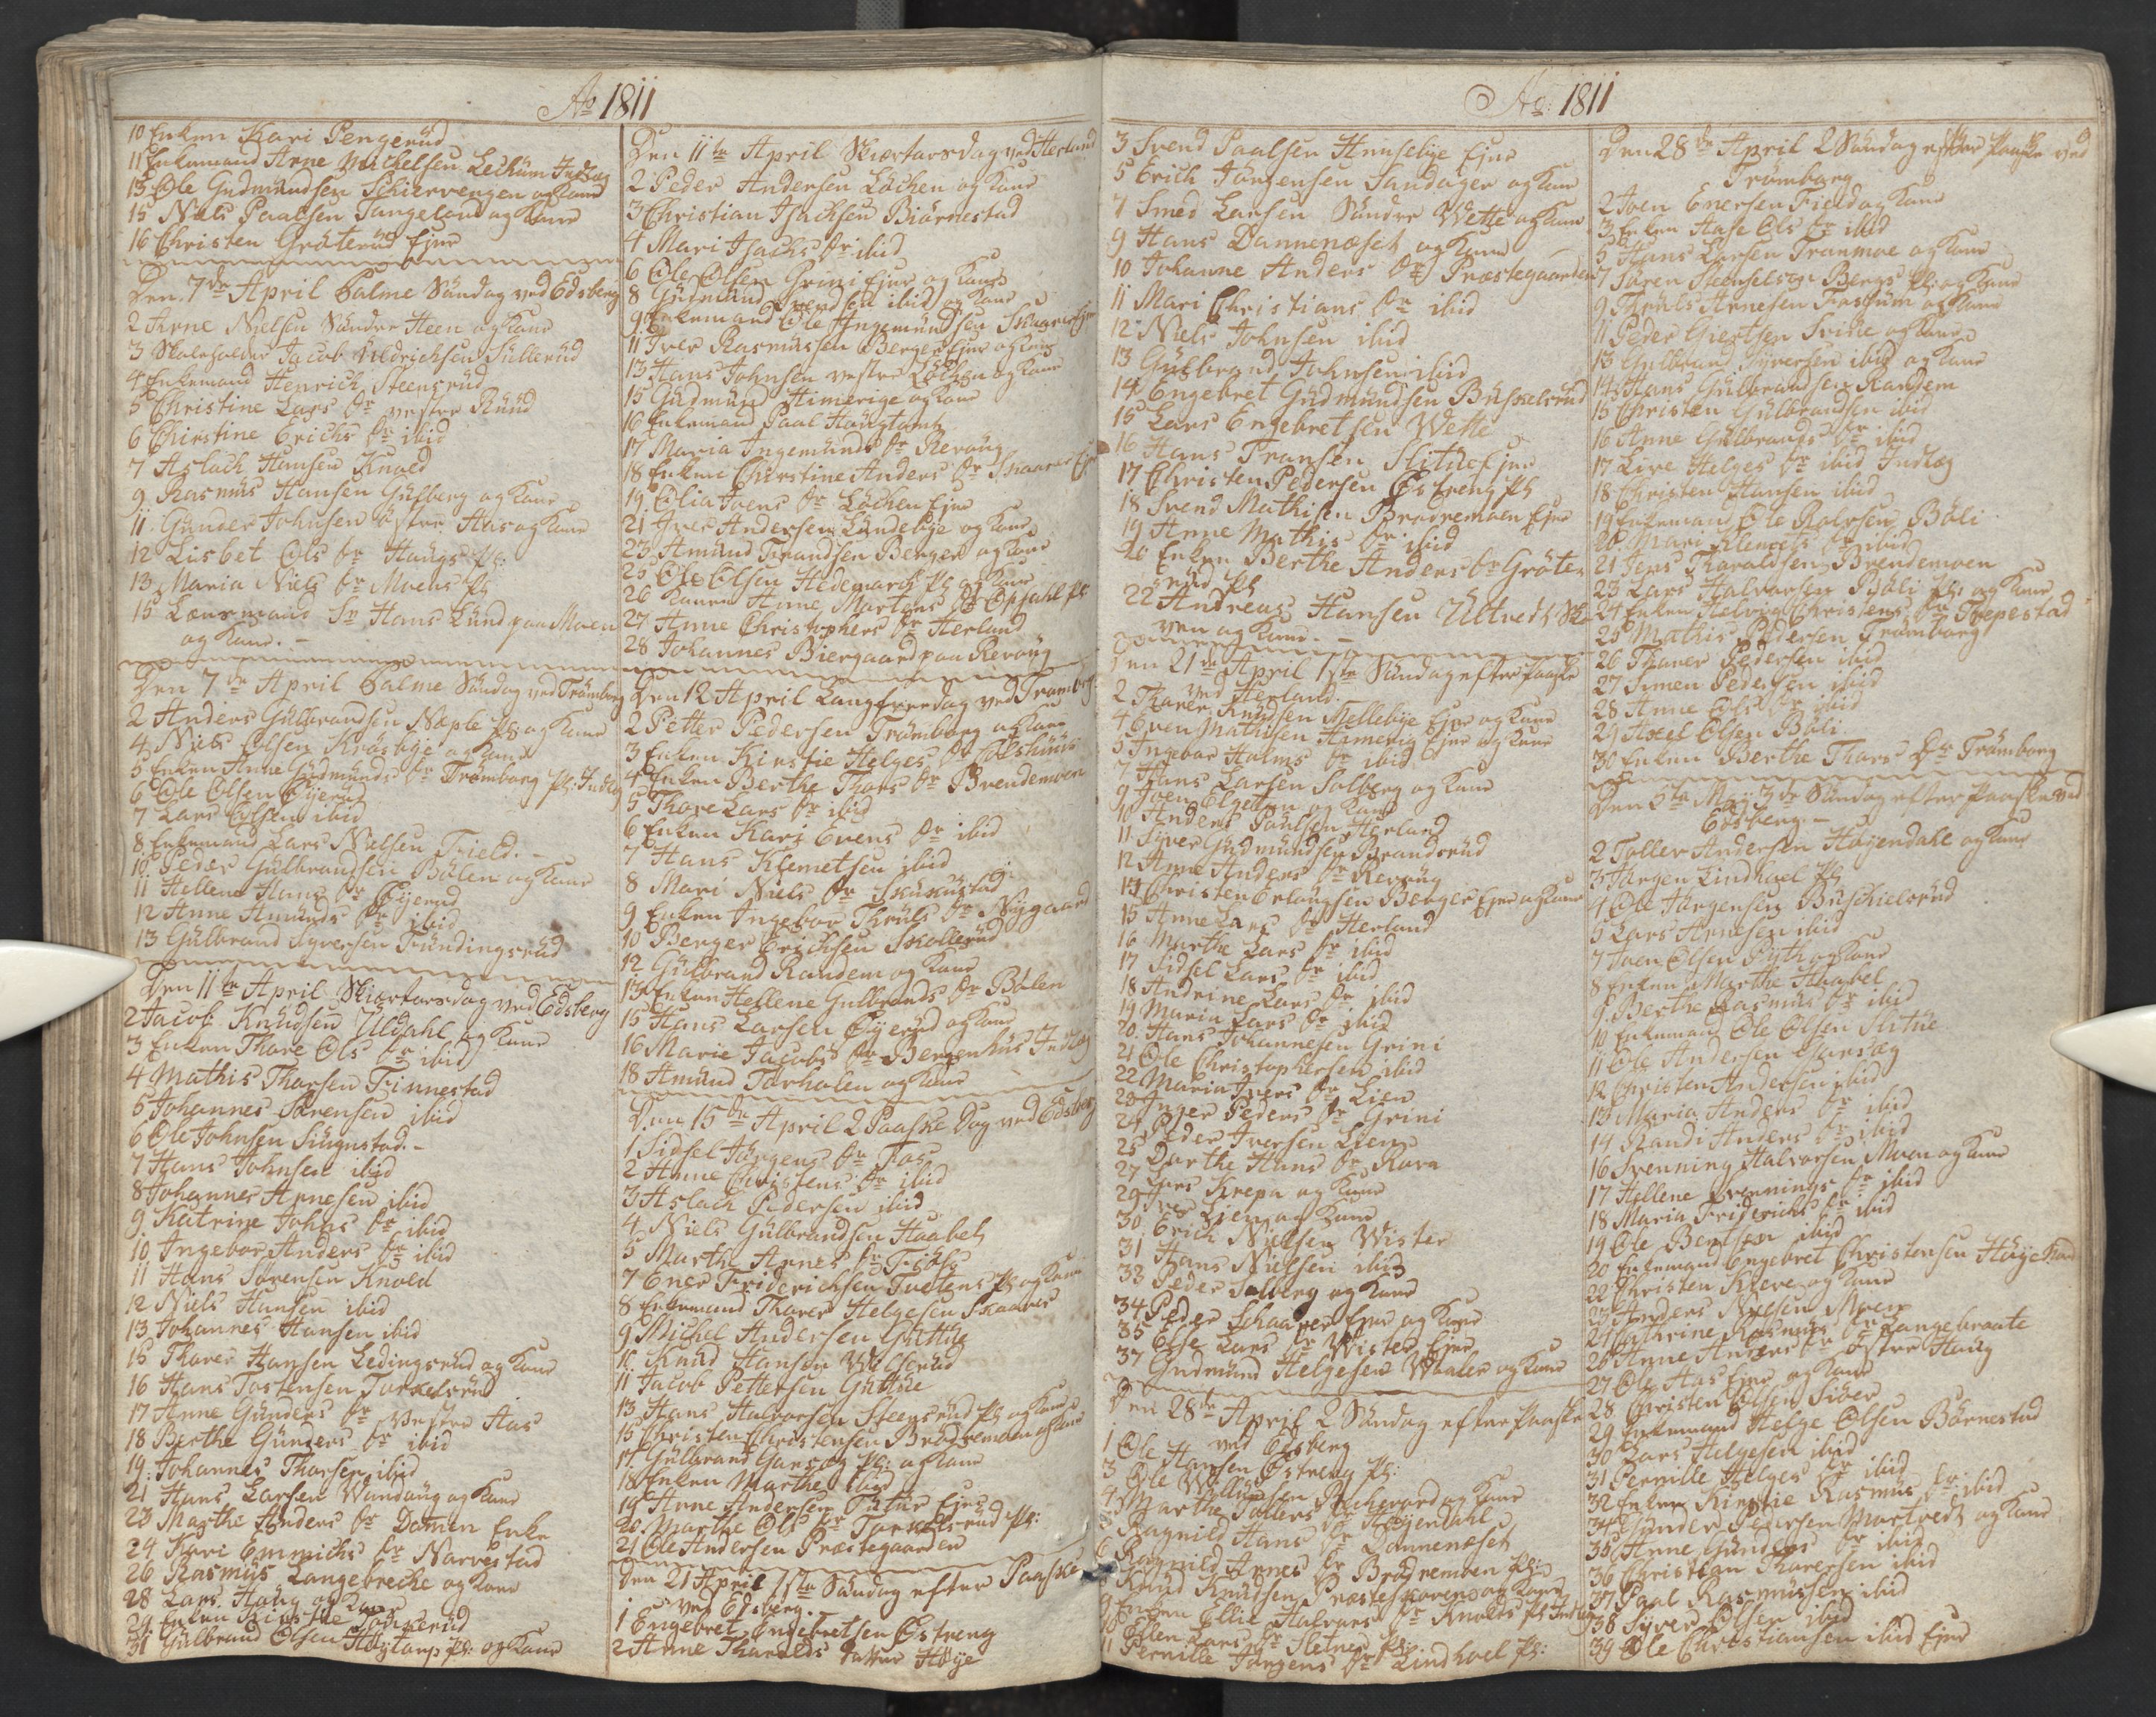 Ao 1811
10 Enken Kari Pengerud
11 Enkemand Arne Michelsen Lechum Indlæg
13 Ole Gudmundsen Schiervengen og Kone
15 Niels Paalsen Tangeland og Kone
16 Christen Gröterud Ejer
Den 7de April Palme Söndag ved Edsberg
2 Arne Nielsen Söndre Heen og Kone
3 Skoleholder Jacob Uldrichsen Sullerud
4 Enkemand Henrich Steensrud
5 Christine Lars Dr vestre Ruud
6 Christine Erichs Dr ibid
7 Aslach Hansen Knold
9 Rasmus Hansen Gulberg og Kone
11 Gunder Johnsen östre Aas og Kone
12 Lisbet Ols Dr Haugs Pl:
13 Maria Niels Dr Moens Pl
15 Lensmand Sr Hans Lund paa Moen
og Kone. -
Den 7de April Palme Söndag ved Trömborg
2 Anders Gulbrandsen Næple Pl: og Kone
4 Niels Olsen Kråsbye og Kone
5 Enken Anne Gudmunds Dr Trömborg Pl: Indlæg
6 Ole Olsen Öyerud
7 Lars Olsen ibid
8 Enkemand Lars Nielsen Field. -
10 Peder Gulbrandsen Bölen og Kone
11 Hellene Hans Dr Öyerud
12 Anne Amunds Dr ibid
13 Gulbrand Syversen Fundingsrud
Den 11te April Skiertorsdag ved Edsberg
2 Jacob Knudsen Uldahl og Kone
3 Enken Thore Ols Dr ibid
4 Mathis Thorsen Finnestad
5 Johannes Sörensen ibid
6 Ole Johnsen Siugustad. -
7 Hans Johnsen ibid
8 Johannes Arnesen ibid
9 Katrine Johns Dr ibid
10 Ingebor Anders Dr ibid
11 Hans Sörensen Knold
12 Niels Hansen ibid
13 Johannes Hansen ibid
15 Thorer Hansen Ledingsrud og Kone
16 Hans Tostensen Torkelsrud
17 Anne Gunders Dr Vestre Aas
18 Berthe Gunders Dr ibid
19 Johannes Thorsen ibid
21 Hans Larsen Wandaug og Kone
23 Marthe Anders Dr Damen Enke
24 Kari Emmichs Dr Narvestad
26 Rasmus Langebreche og Kone
28 Lars Haug og Kone
29 Enken Kirstie
31 Gulbrand Olsen Höytorp Pl: og Kone
Den 11te April Skiertorsdag ved Herland
2 Peder Andersen Löchen og Kone
3 Christian Isachsen Biörnestad
4 Mari Isachs Dr ibid
6 Ole Olsen Grini Ejer og Kone
8 Gudmund Svendsen ibid og Kone
9 Enkemand Ole Ingemundsen Skaarer Ejer
11 Iver Rasmussen Berger Ejer og Kone
13 Hans Johnsen vestre Löchen og Kone
15 Gudmund Himerige og Kone
16 Enkemand Paal Haugtomt
17 Maria Ingemunds Dr Revoug
18 Enken Christine Anders Dr Skaarer Ejer
19 Olia Joens Dr Löchen Ejer
21 Iver Andersen Lundebye og Kone
23 Amund Trandsen Berger og Kone
25 Ole Olsen Hedemarch Pl og Kone
26 Konen Anne Martens Dr Opsahl Pl
27 Anne Christophers Dr Herland
28 Johannes Biergaard paa Revoug
Den 12 April Langfredag ved Tromborg
2 Petter Pedersen Trömborg og Kone
3 Enken Kirstie Helges Dr Olshuus
4 Enken Berthe Thors Dr Brendemoen
5 Thore Lars Dr ibid
6 Enken Kari Evens Dr ibid
7 Hans Klemetsen ibid
8 Mari Niels Dr Skukustad
9 Enken Ingebor Thruls Dr Nygaard
10 Berger Erichsen Skollerud
12 Gulbrand Randem og Kone
13 Enken Hellene Gulbrands Dr Bölen
15 Hans Larsen Öyerud og Kone
16 Marie Jacobs Dr Bergenhus Indlæg
18 Amund Torholen og Kone
Den 15de April 2 Paaske Dag ved Edsberg
1 Sidsel Jörgens Dr Fos
2 Anne Christens Dr ibid
3 Aslach Pedersen ibid
4 Niels Gulbrandsen Haabet
5 Marthe Arnes Dr Friöss
7 Ener Friderichsen Tvetens Pl og Kone
8 Enkemand Thorer Helgesen Skaarer
9 Michel Andersen Guttue
10 Knud Hansen Wilserud
11 Jacob Pettersen Guttue
13 Hans Halvorsen Steensrud Pl og Kone
15 Christen Christensen Brödremoen og Kone
17 Gulbrand Garseg Pl: og Kone
18 Enken Marthe ibid
19 Anne Andersen Tutur Ejer
20 Marthe Ols Dr Torkelsrud Pl:
21 Ole Andersen Præstegaarden
Den 21 April 1ste Söndag efter Paaske
ved Edsberg. -
1 Engebret Engebretsen Östreng
2 Anne Tharalds Datter Höye
Ao: 1811
3 Svend Paalsen Huusebye Ejer
5 Erich Jörgensen Sandager og Kone
7 Smed Larsen Söndre Wette og Kone
9 Hans Dannenæset og Kone
10 Johanne Anders Dr Præstegaarden
11 Mari Christians Dr ibid
12 Niels Johnsen ibid
13 Gulbrand Johnsen ibid
14 Engebret Gudmundsen Busselsrud
15 Lars Engebretsen Wette
16 Hans Fransen Slitue Ejer
17 Christen Pedersen Östreng Pl
18 Svend Mathisen Brödremoen Ejer
19 Anne Mathis Dr ibid
20 Enken Berthe Anders Dr Gröte-
rud Pl
22 Andreas Hansen Ultvedt Sko-
ven og Kone. -
Den 21de April 1ste Söndag efter Paaske
ved Herland.
2 Thorer Knudsen Mellebye Ejer og Kone
4 Even Mathisen Himerig Ejer og Kone
5 Ingebor Holms Dr ibid
7 Hans Larsen Solberg og Kone
9 Joen Elgetun og Kone
10 Anders Poulsen Herland
11 Syver Gudmundsen Brandsrud
12 Anne Anders Dr Revoug
14 Christen Erlandsen Berger Ejer og Kone
15 Anne Lars Dr Herland
16 Marthe Lars Dr ibid
17 Sidsel Lars Dr ibid
18 Andrine Lars Dr ibid
19 Maria Lars Dr ibid
20 Hans Johannesen Grini
21 Ole Christophersen ibid
22 Maria Ivers Dr Lien
23 Inger Peders Dr Grini
24 Peder Iversen Lien
25 Dorthe Hans Dr Rova
27 Lars Krepa og Kone
29 Iver Lien og Kone
30 Erich Nielsen Wister
31 Hans Nielsen ibid
33 Peder Solberg og Kone
34 Peder Schaarer Ejer og Kone
35 Else Lars Dr Wister Ejer
37 Gudmund Helgesen Waaler og Kone
Den 28de April 2 Söndag efter Paaske
ved Edsberg
1 Ole Hansen Östreng Pl:
3 Ole Willigsen Bechevard og Kone
4 Marthe Tollers Dr Höyendahl
5 Ragnild Hans Dr Dannenæset
6 Ragnild Arnes Dr Brödremoen Pl:
8 Knud Knudsen Præsteskoven og Kone
9 Enken Ellie Halvors Dr Knolds Pl Indlæg
10 Ellen Lars Dr Sletner Pl:
11 Pernille Jörgens Dr Lindhoel Pl:
Den 28de April 2 Söndag efter Paaske ved
Trömborg
2 Joen Enersen Field og Kone
3 Enken Aase Ols Dr ibid
5 Hans Larsen Tranmoe og Kone
7 Sören Steenselsen Bergs Pl: og Kone
9 Thruls Arnesen Frasium og Kone
11 Peder Giertsen Svikie og Kone
13 Gulbrand Syversen ibid og Kone
14 Hans Gulbrandsen Randem
15 Christen Gulbrandsen ibid
16 Anne Gulbrands Dr ibid
17 Live Helges Dr ibid Indlæg
18 Christen Hansen ibid
19 Enkemand Ole Rolvsen Böli
20 Mari Klemets Dr ibid
21 Jens Tharaldsen Brendemoen
23 Lars Halvorsen Böli Pl: og Kone
24 Enken Helvig Christens Dr Trepestad
25 Mathis Pedersen Trömborg
26 Thorer Pedersen ibid
27 Simen Pedersen ibid
28 Anne Ols Dr ibid
29 Axel Olsen Böli
30 Enken Berthe Thors Dr Trömborg
Den 5te Maÿ 3de Söndag efter Paaske ved
Edsberg. -
2 Toller Andersen Höyendahl og Kone
3 Jörgen Lindhoel Pl
4 Ole Jörgensen Buschielsrud
5 Lars Arnesen ibid
7 Joen Olsen Pyth og Kone
8 Enken Marthe Haabet
9 Berthe Rasmus Dr ibid
10 Enkemand Ole Olsen Slitue
11 Ole Andersen Garsæg
12 Christen Andersen ibid
13 Maria Anders Dr ibid
14 Randi Anders Dr ibid
16 Svenning Halvorsen Moen og Kone
17 Hellene Svennings Dr ibid
18 Maria Friderichs Dr ibid
19 Ole Bentsen ibid
20 Enkemand Engebret Christensen Höye
22 Christen Kieve og Kone
23 Anders Nielsen Moen
24 Cathrine Rasmus Dr Langebraate
25 Anne Anders Dr östre Haug
27 Ole Aas Ejer og Kone
28 Christen Olsen Siöer
29 Enkemand Helge Olsen Börnestad
30 Lars Helgesen ibid
31 Pernille Helges Dr ibid
32 Enken Kirstie Rasmus Dr ibid
34 Gunder Pedersen Martvedt og Kone
35 Anne Gunders Dr ibid
36 Christian Thorersen ibid
37 Paal Rasmussen ibid
38 Syver Olsen ibid
39 Ole Christiansen ibid Ejer